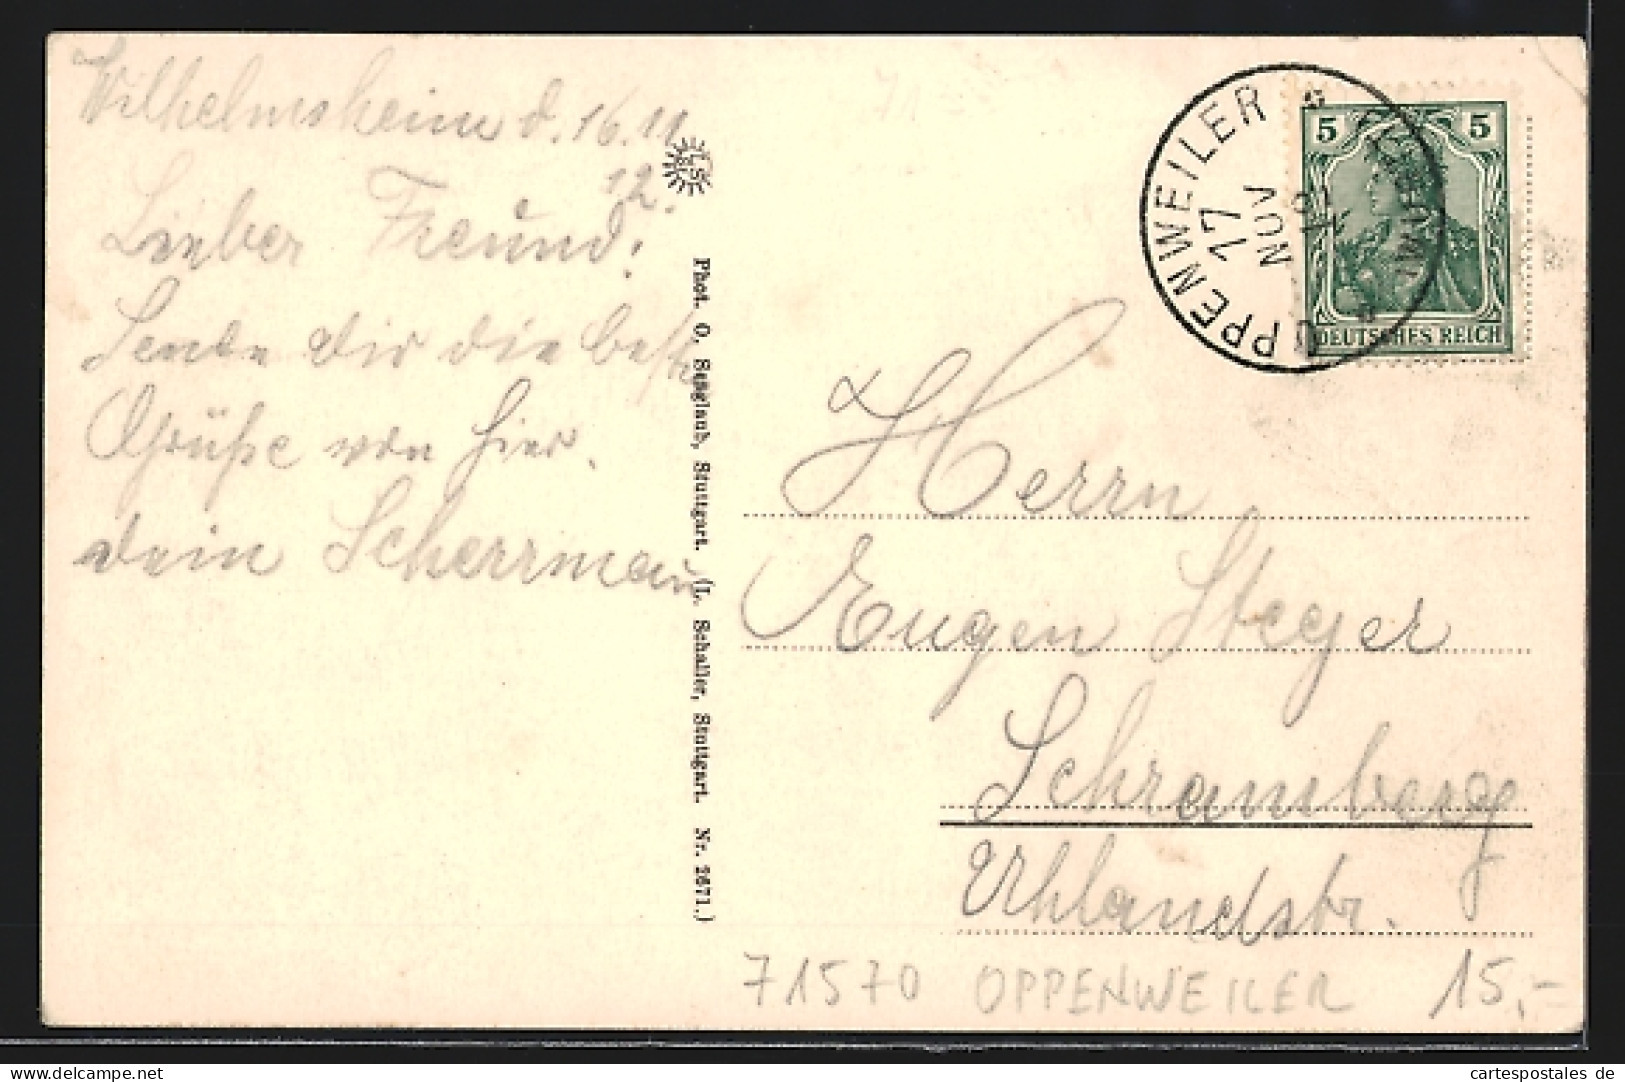 Wilhelmsheim d. 16.11
12.
Lieber Freund!
Sende dir die beste
Grüße von hier.
dein Scherrmann
Phot. O. Seeglaub, Stuttgart. (L. Schaller, Stuttgart. Nr. 2671.)
OPPENWEILER
17
NOV
5 5
DEUTSCHES REICH
Herrn
Eugen Steger
Schramberg
Uhlandstr.
71570 OPPENWEILER 15,-
cartespostales de
delcampe.net